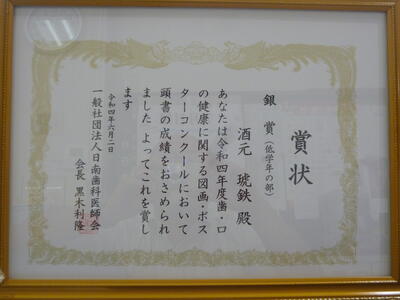 賞状
銀賞(低学年の部)
酒元 琥鉄 殿
あなたは令和四年度歯・口
の健康に関する図画・ポス
ターコンクールにおいて
頭書の成績をおさめられ
ました よってこれを賞し
ます
令和四年六月二日
一般社団法人日南歯科医師会
会長 黒木利隆